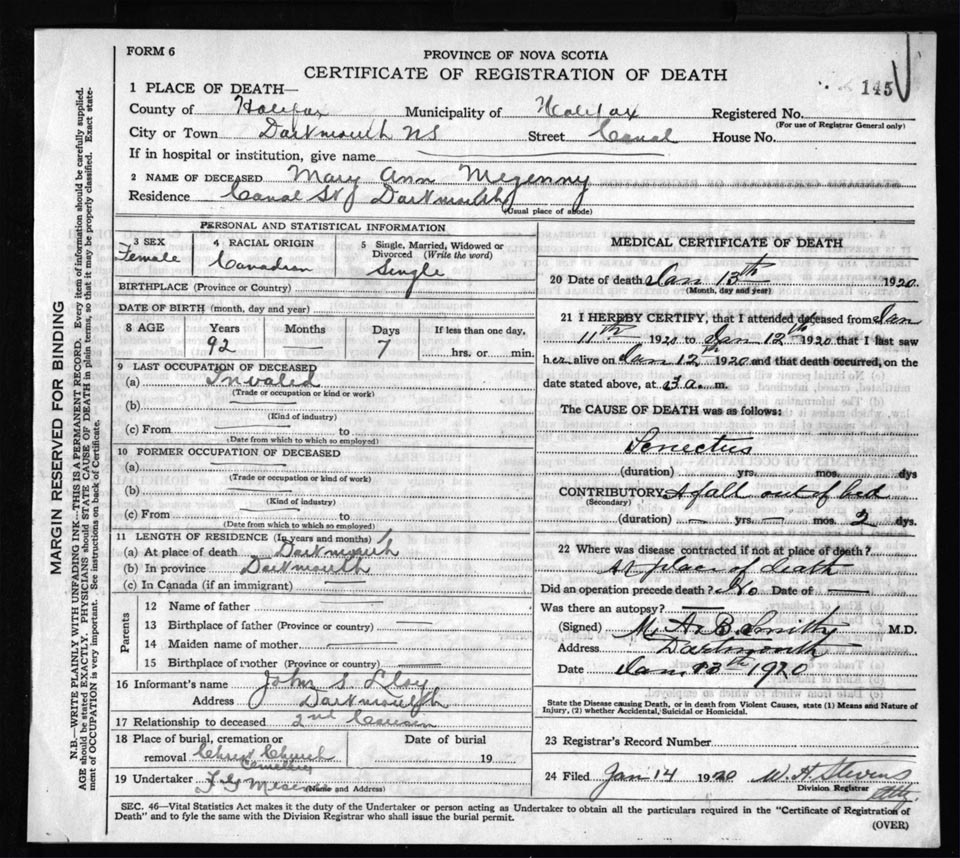 FORM 6
PROVINCE OF NOVA SCOTIA
CERTIFICATE OF REGISTRATION OF DEATH
145
1 PLACE OF DEATH—
County of Halifax Municipality of Halifax Registered No.
(For use of Registrar General only)
City or Town Dartmouth NS Street Canal House No.
If in hospital or institution, give name
2 NAME OF DECEASED Mary Ann
Residence Canal St Dartmouth
(Usual place of abode)
PERSONAL AND STATISTICAL INFORMATION
3 SEX 4 RACIAL ORIGIN 5 Single, Married, Widowed or Divorced (Write the word)
Female Canadian Single
BIRTHPLACE (Province or Country)
DATE OF BIRTH (month, day and year)
8 AGE Years Months Days If less than one day,
92 — 7 hrs. or min.
9 LAST OCCUPATION OF DECEASED
(a) Invalid
(Trade or occupation or kind or work)
(b)
(Kind of industry)
(c) From to
(Date from which to which so employed)
10 FORMER OCCUPATION OF DECEASED
(a)
(Trade or occupation or kind of work)
(b)
(Kind of industry)
(c) From to
(Date from which to which so employed)
11 LENGTH OF RESIDENCE (In years and months)
(a) At place of death Dartmouth
(b) In province Dartmouth
(c) In Canada (if an immigrant)
Parents
12 Name of father
13 Birthplace of father (Province or country)
14 Maiden name of mother
15 Birthplace of mother (Province or country)
16 Informant's name John S.
Address Dartmouth
17 Relationship to deceased 2nd Cousin
18 Place of burial, cremation or removal Christ Church Cemetery Date of burial 19
19 Undertaker
(Name and Address)
MEDICAL CERTIFICATE OF DEATH
20 Date of death Jan 13th 1920
(Month, day and year)
21 I HEREBY CERTIFY, that I attended deceased from Jan
11th 1920 to Jan 12th 1920 that I last saw
her alive on Jan 12th 1920 and that death occurred, on the
date stated above, at 3 a. m.
The CAUSE OF DEATH was as follows:
Senectus
(duration) yrs. mos. dys
CONTRIBUTORY A fall out of bed
(Secondary)
(duration) — yrs. — mos. 2 dys.
22 Where was disease contracted if not at place of death?
At place of death
Did an operation precede death? No Date of —
Was there an autopsy? —
(Signed) M. A. B. Smith M.D.
Address Dartmouth
Date Jan 13th 1920
State the Disease causing Death, or in death from Violent Causes, state (1) Means and Nature of
Injury, (2) whether Accidental, Suicidal or Homicidal.
23 Registrar's Record Number
24 Filed Jan 14 1920 W. H. Stevens
Division Registrar
SEC. 46—Vital Statistics Act makes it the duty of the Undertaker or person acting as Undertaker to obtain all the particulars required in the "Certificate of Registration of
Death" and to fyle the same with the Division Registrar who shall issue the burial permit.
(OVER)
MARGIN RESERVED FOR BINDING
N.B.—WRITE PLAINLY WITH UNFADING INK—THIS IS A PERMANENT RECORD. Every item of information should be carefully supplied.
AGE should be stated EXACTLY. PHYSICIANS should STATE CAUSE OF DEATH in plain terms, so that it may be properly classified. Exact state-
ment of OCCUPATION is very important. See instructions on back of Certificate.